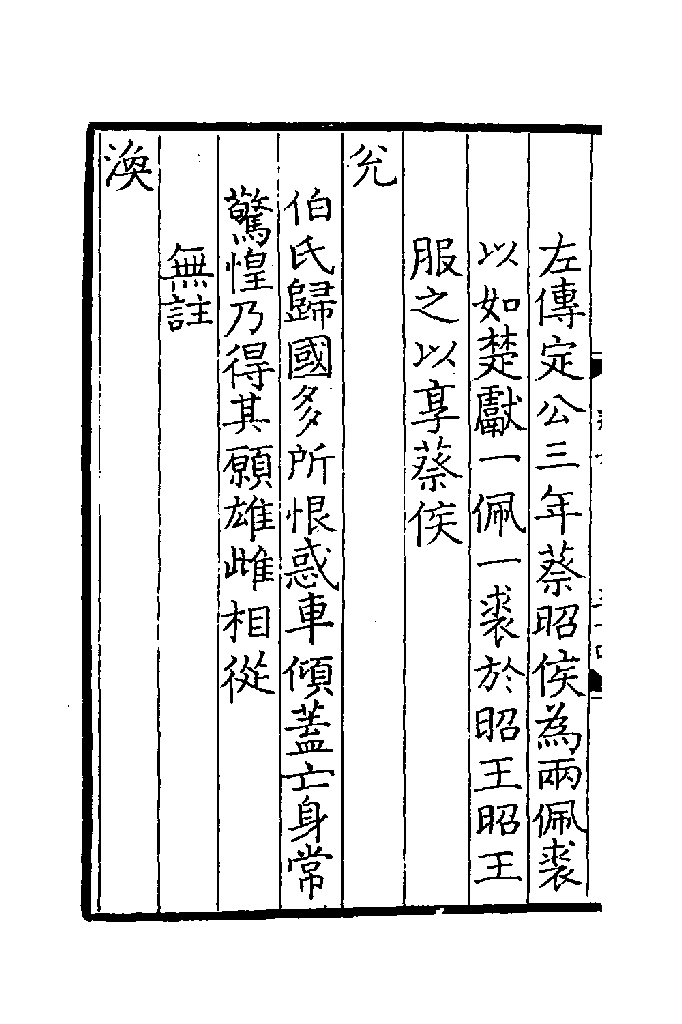 左傳定公三年蔡昭侯為兩佩裘
以如楚獻一佩一裘於昭王昭王
服之以享蔡侯
兊
伯氏歸國多所恨惑車傾蓋亡身常
驚惶乃得其願雄雌相從
無註
渙